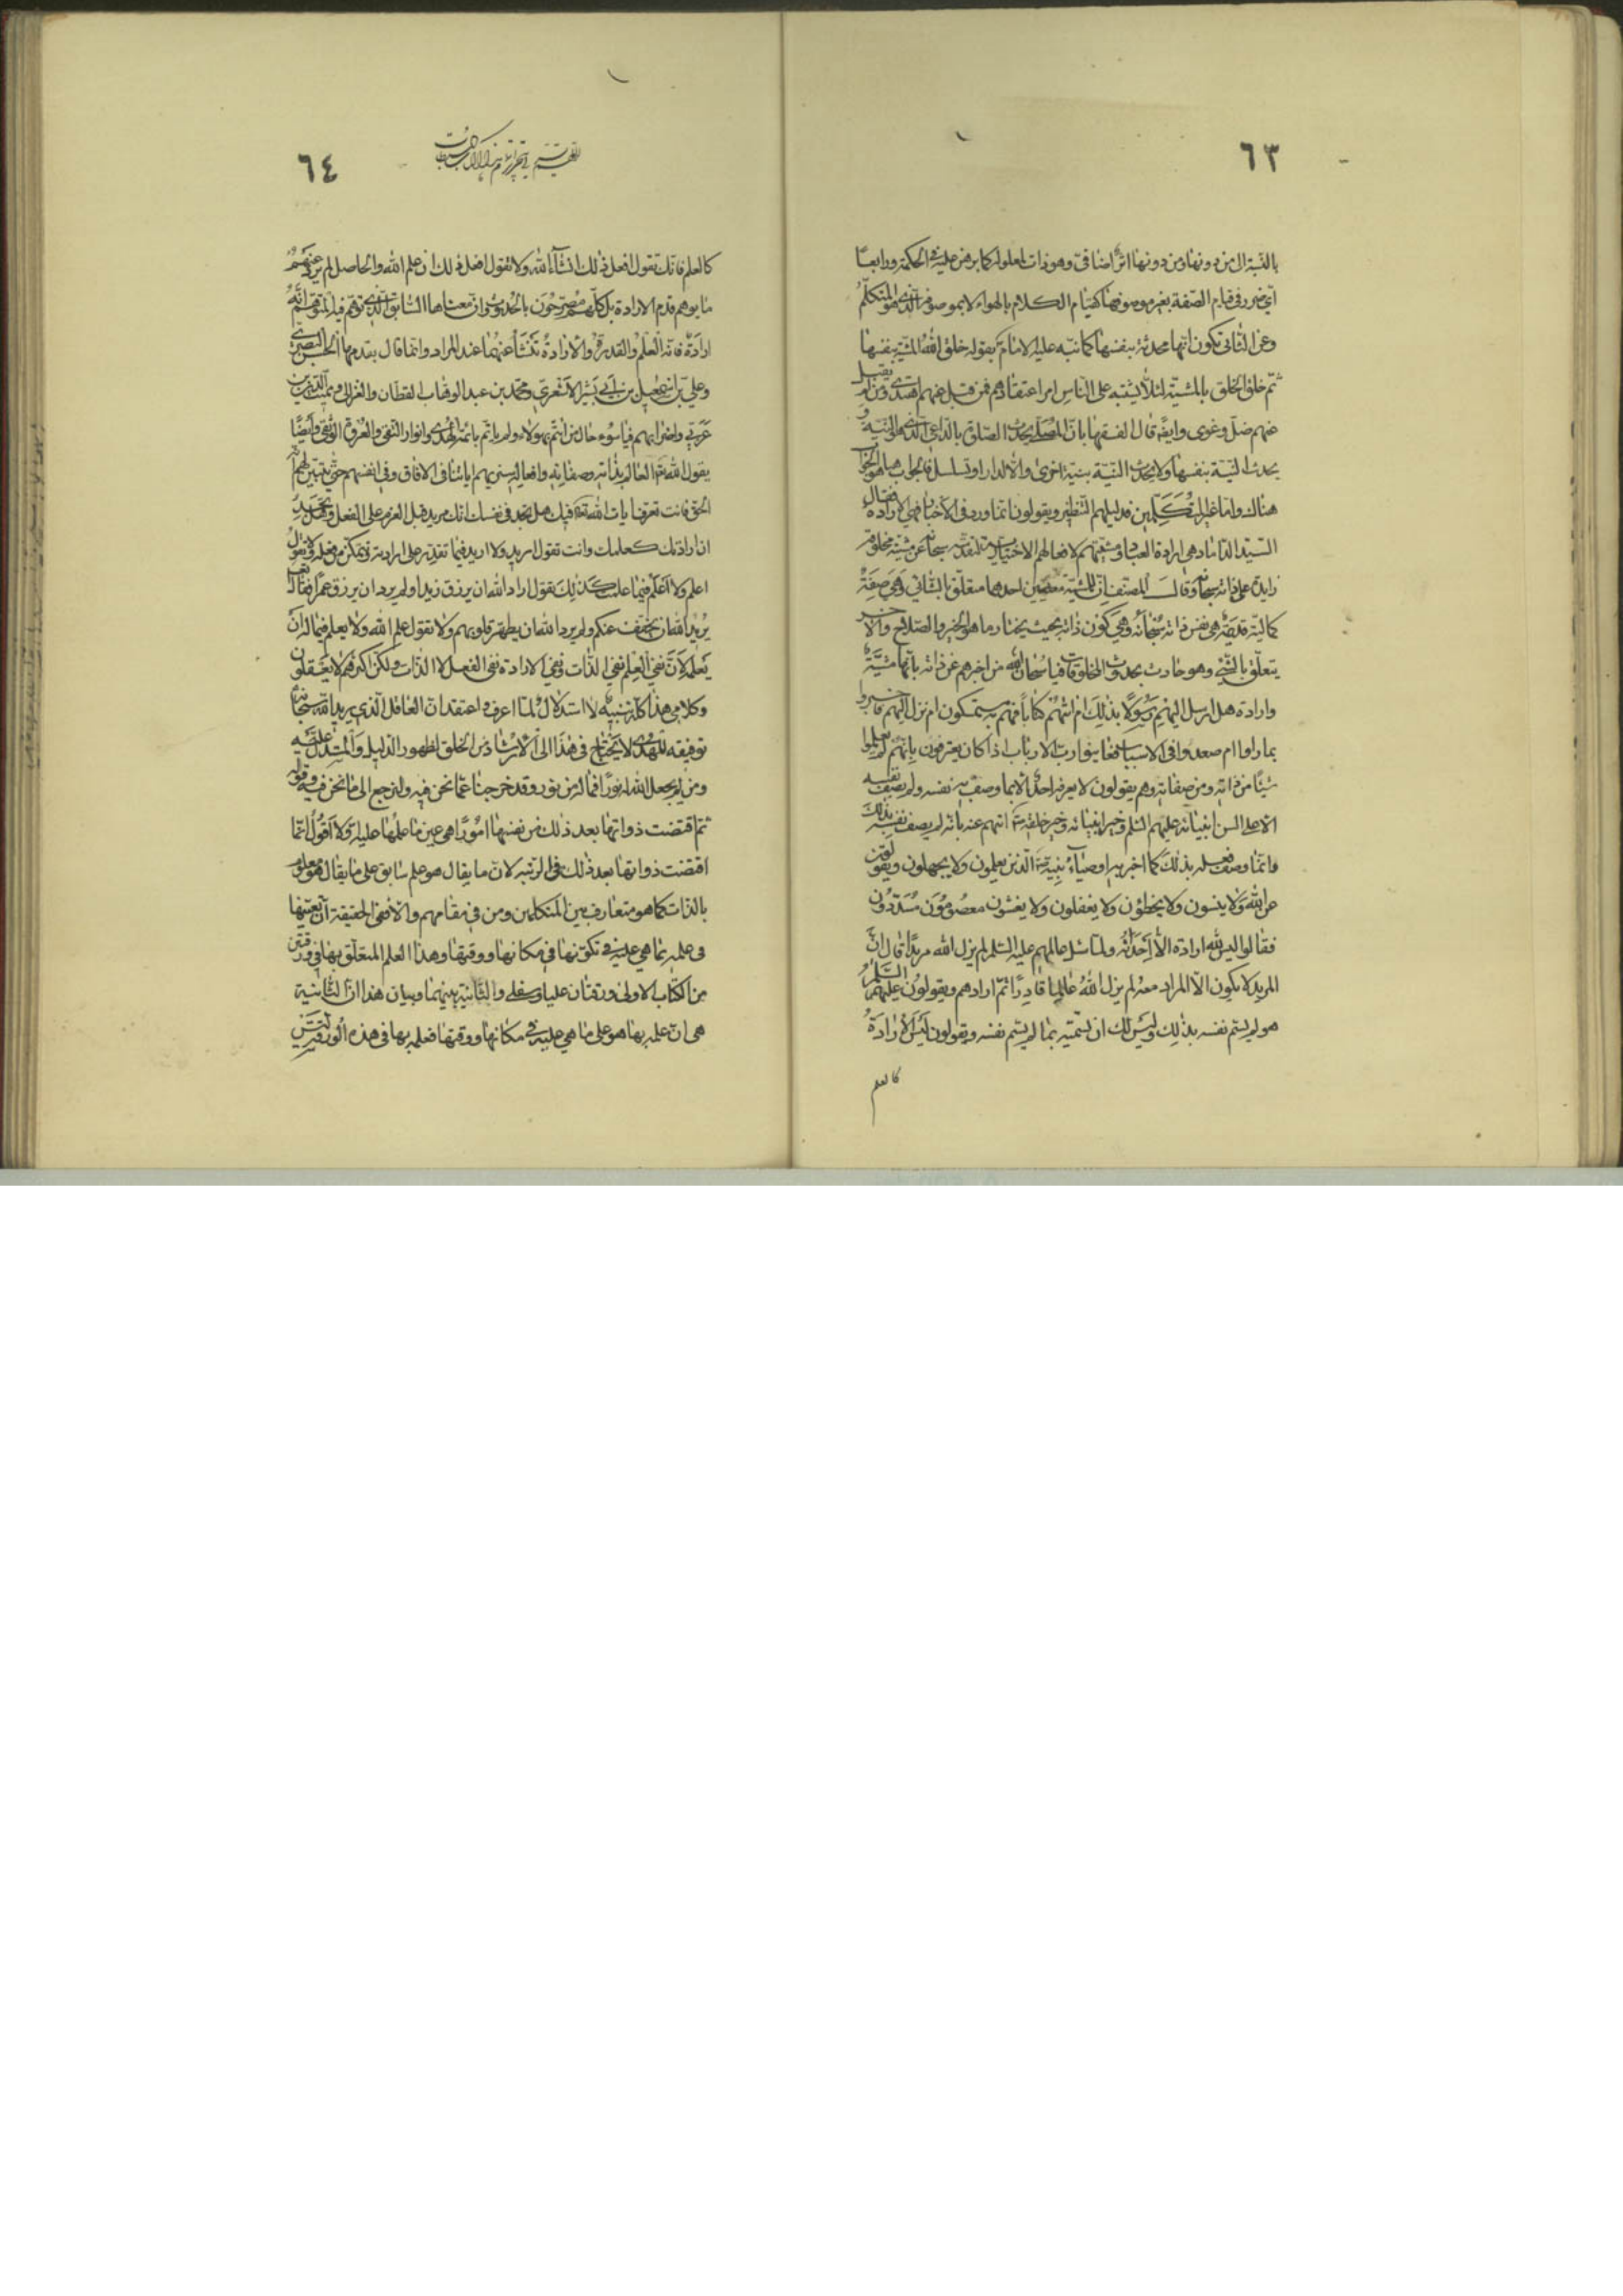 ٦٣
بالنسبة الى من دونها ومن دونها اثر اضافى وهو ذات لمعلولها كما برهن عليه فى الحكمة ورابعا
اى ضرر فى قيام الصفة بغير موصوفها كقيام الكلام بالهواء لا بموصوفه الذى هو المتكلم
وعن الثانى بكون انها محدثة بنفسها كما نبه عليه الامام ع بقوله خلق الله المشية بنفسها
ثم خلق الخلق بالمشية لئلا يشتبه على الناس امر اعتقادهم فمن قبل عنهم اهتدى ومن لم يقبل
عنهم ضل وغوى وايضا قال الفقهاء بان المصلى يحدث الصلوة بالداعى الذى هو النية و
يحدث النية بنفسها ولا يحدث النية بنية اخرى والا لدار او تسلسل فالجواب هنا هو الجواب
هناك واما غير المتكلمين فدليلهم النظير ويقولون انما ورد فى الاخبار فهى الارادة فقال
السيد الداماد هى ارادة العباد ومشيتهم لافعالهم الاختيارية لتقدسه سبحانه عن مشية مخلوقة
زايدة على ذاته سبحانه وقال المصنف ان للمشية معنيين احدهما متعلق بالشائى وهى صفة
كمالية قديمة هى نفس ذاته سبحانه وهى كون ذاته بحيث يختار ما هو الخير والصلاح والاخر
يتعلق بالمشئ وهو حادث بحدوث المخلوقات فيا سبحان الله من اخبرهم عن ذاته بانها مشية
وارادة هل ارسل اليهم رسولا بذلك ام اتيهم كتابا فهم به مستمسكون ام نزل اليهم فاخبروا
بما راوا ام صعدوا فى الاسباب فعاينوا رب الارباب اذا كان يعترفون بانهم لم يعلموا
شيئا من ذاته ومن صفاته وهم يقولون لا يعرفه احد الا بما وصف به نفسه ولم يصف نفسه
الا على السن انبيائه عليهم السلم وخير انبيائه وخير خلقه ص انبهم عنه بانه لم يصف نفسه بذلك
وانما وصف فعله بذلك كما اخبر به اوصياء نبيه الذين يعلمون ولا يجهلون ويقولون
عن الله ولا ينسون ولا يخطؤن ولا يغفلون ولا يغشون معصومون مسددون
فقالوا ليس لله ارادة الا احداثه ولما سئل عالمهم عليه السلم لم يزل الله مريدا قال ان
المريد لا يكون الا المراد معه لم يزل الله عالما قادرا ثم اراد وهم يقولون عليهم السلم
هو لم يسم نفسه بذلك وليس لك ان تسميه بما لم يسم نفسه ويقولون ليس الارادة
كالعلم
٦٤
كالعلم فانك تقول افعل ذلك انشاء الله ولا تقول افعل ذلك ان علم الله والحاصل لم يرد عنهم
ما يوهم قدم الارادة بل كلهم مصرحون بالحدوث وان معناها السابق الذى توهم فيه المتوهم انه
ارادة فانه العلم والقدرة والارادة تنشأ عنهما عند المراد وانما قال بقدمها الحسن البصرى
وعلى بن اسمعيل بن ابى بشر الاشعرى ومحمد بن عبد الوهاب القطان والغزالى ومميت الدين بن
عربى واضرابهم فيا سوء حال من ائتم بهؤلاء ولم ياتم بائمة الهدى وانوار التقى والعروة الوثقى وايضا
يقول الله تع العالم بذاته وصفاته وافعاله سنريهم اياتنا فى الافاق وفى انفسهم حتى يتبين لهم انه
الحق فانت تعرف ايات الله تع فيك هل تجد فى نفسك انك مريد قبل العزم على الفعل وتجد
ان ارادتك كعلمك وانت تقول اريد ولا اريد فيما تقدر على ارادته وتمكن من فعله ولا تقول
اعلم ولا اعلم فيما علمت كذلك تقول اراد الله ان يرزق زيدا ولم يرد ان يرزق عمرا فقال تع
يريد الله ان يخفف عنكم ولم يرد الله ان يطهر قلوبهم ولا تقول علم الله ولا يعلم فيما له ان
يعلمه لان نفى العلم نفى الذات ونفى الارادة نفى الفعل لا الذات ولكن اكثرهم لا يعقلون
وكلامى هذا كله تنبيه لا استدلال لما اعرف واعتقد ان العاقل الذى يريد الله سبحانه
توفيقه للهدى لا يحتاج فى هذا الى الارشاد من الخلق لظهور الدليل والمستدل عليه
ومن لم يجعل الله له نورا فما له من نور وقد خرجنا عما نحن فيه ولنرجع الى ما نحن فيه وقوله
ثم اقتضت ذواتها بعد ذلك من نفسها امورا هى عين ما علمها عليه ولا اقول انما
اقتضت ذواتها بعد ذلك فى الرتبة لان ما يقال هو علم سابق على ما يقال هو معلوم
بالذات كما هو متعارف بين المتكلمين ومن فى مقامهم والا ففى الحقيقة ان تعينها
فى علمه بما هى عليه فى تكونها فى مكانها ووقتها وهذا العلم المتعلق بها فى ورقتين
من الكتاب الاولى ورقتان عليا وسفلى والثانية بينهما وبيان هذا ان الثانية
هى ان علمه بها هو على ما هى عليه فى مكانها ووقتها فعلمه بها فى هذه الورقة ليس